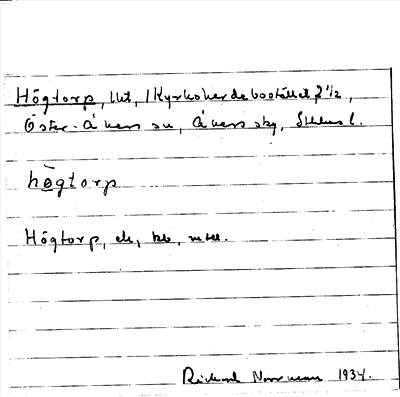 Högtorp, lht, /Kyrkoherdebostället, 2 1/2,
Öster-Åkers sn, Åkers skg, Sthlms l.
hògtorp
Högtorp, ck,
Rickard Norrman 1934.